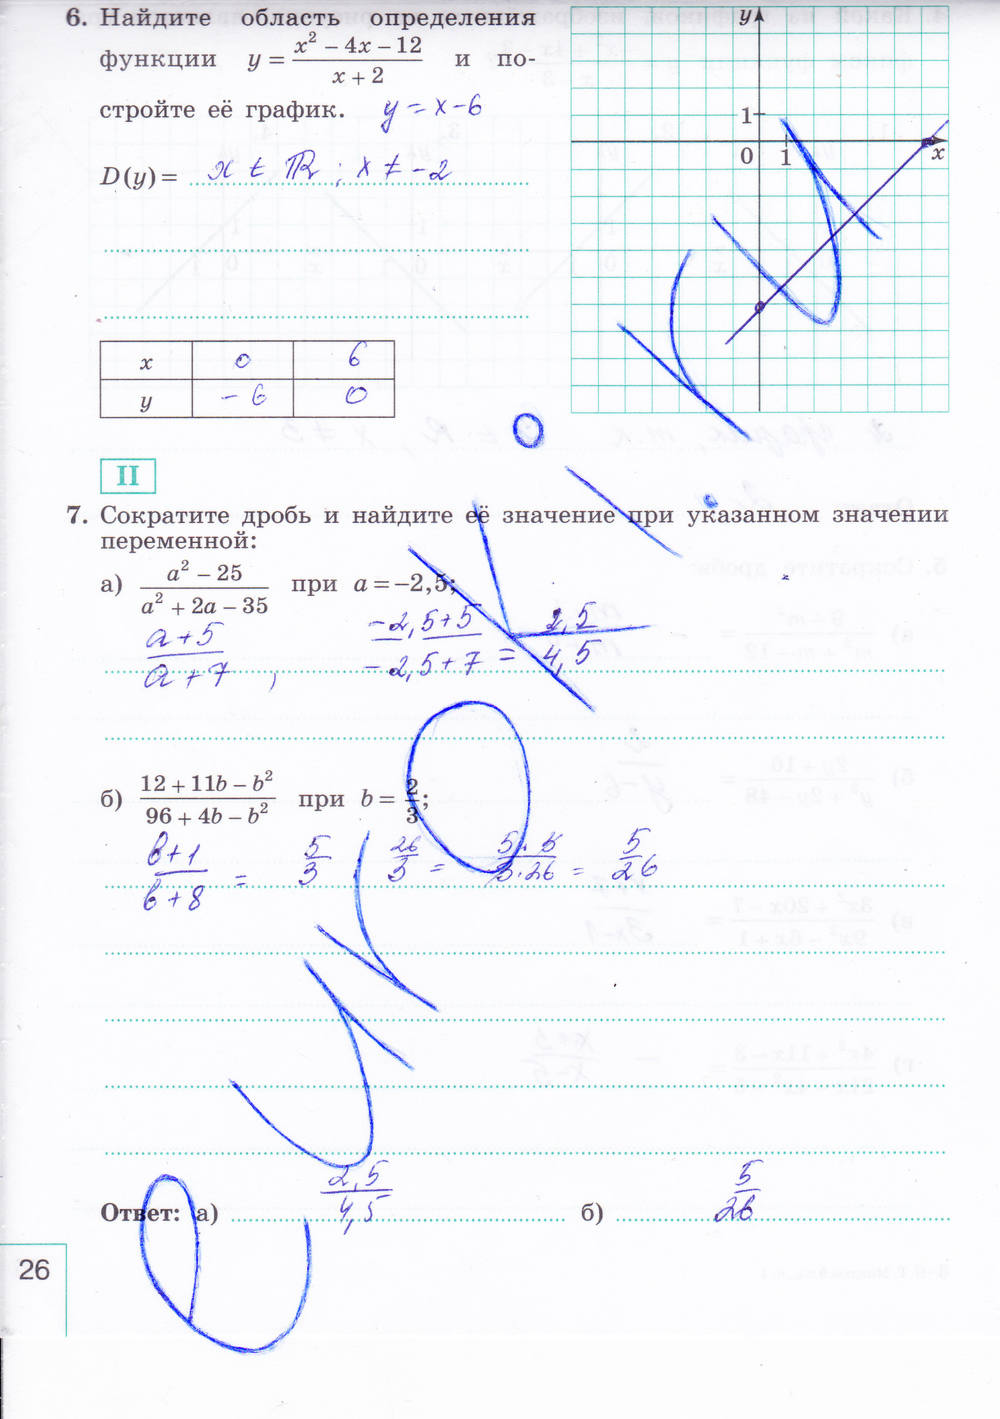 6. Найдите область определения
функции y = (x² − 4x − 12)/(x + 2) и по-
стройте её график. y = x − 6
D(y) = x ∈ ℝ ; x ≠ −2
x 0 6
y −6 0
y
1
0 1 x
II
7. Сократите дробь и найдите её значение при указанном значении
переменной:
а) (a² − 25)/(a² + 2a − 35) при a = −2,5;
(a+5)/(a+7) , (−2,5+5)/(−2,5+7) = 2,5/4,5
б) (12 + 11b − b²)/(96 + 4b − b²) при b = 2/3;
(b+1)/(b+8) = 5/3 : 26/3 = (5·3)/(3·26) = 5/26
Ответ: а) 2,5/4,5 б) 5/26
26